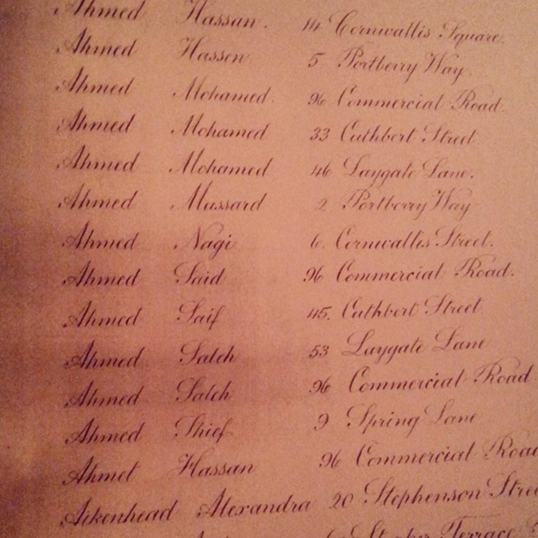 Ahmed Hassan. 14 Cornwallis Square.
Ahmed Hassen 5 Portberry Way
Ahmed Mohamed. 96 Commercial Road.
Ahmed Mohamed 33 Cuthbert Street
Ahmed Mohamed 46 Laygate Lane.
Ahmed Mussard 2 Portberry Way
Ahmed Nagi 6. Cornwallis Street.
Ahmed Said 96 Commercial Road.
Ahmed Saif 45. Cuthbert Street
Ahmed Saleh 53 Laygate Lane
Ahmed Saleh 96 Commercial Road
Ahmed Shief 9 Spring Lane
Ahmet Hassan 96 Commercial Road
Aikenhead Alexandra 20 Stephenson Stree
Terrace